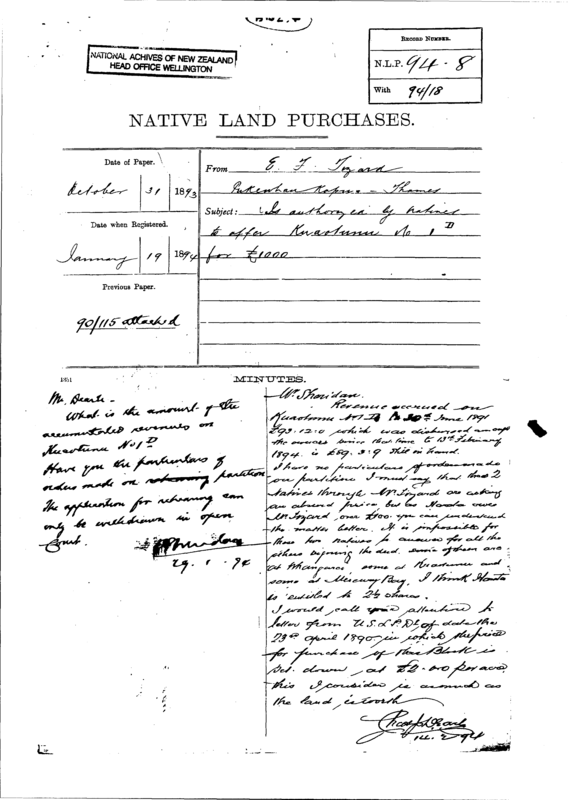 NATIONAL ACHIVES OF NEW ZEALAND
HEAD OFFICE WELLINGTON
RECORD NUMBER.
N.L.P. 94 · 8
With 94/18
NATIVE LAND PURCHASES.
Date of Paper.
October 31 1893
Date when Registered.
January 19 1894
Previous Paper.
90/115 attached
From E. F. Tizard
Thames
Subject: Is authorized by natives
to offer Kuaotunu No 1D
for £1000
MINUTES.
Mr. Dearle -
What is the amount of the
accumulated revenues on
Kuaotunu No 1D
Have you the particulars of
orders made on partition
The application for rehearing can
only be withdrawn in open
Court.
29. 1. 94
Mr Sheridan.
Revenue accrued on
Kuaotunu No 1D to 30th June 1891
£93.12.0 which was disbursed amongst
the owners since that time to 13th February
1894 is £89.3.9 still in hand.
I have no particulars of orders made
on partition I must say that these 2
natives through Mr Tizard are asking
an absurd price, but as owes
Mr Tizard over £100 you can understand
the matter better. It is impossible for
these two natives to answer for all the
others signing the deed. some of them are
at Whangarei, some at and
some at Mercury Bay, I think
is entitled to 2½ shares.
I would call your attention to
letter from U.S.L.P.D. of date the
23rd April 1890 in which the price
for purchase of this Block is
set down at £2.0.0 per acre
this I consider is as much as
the land is worth
14. 2. 94